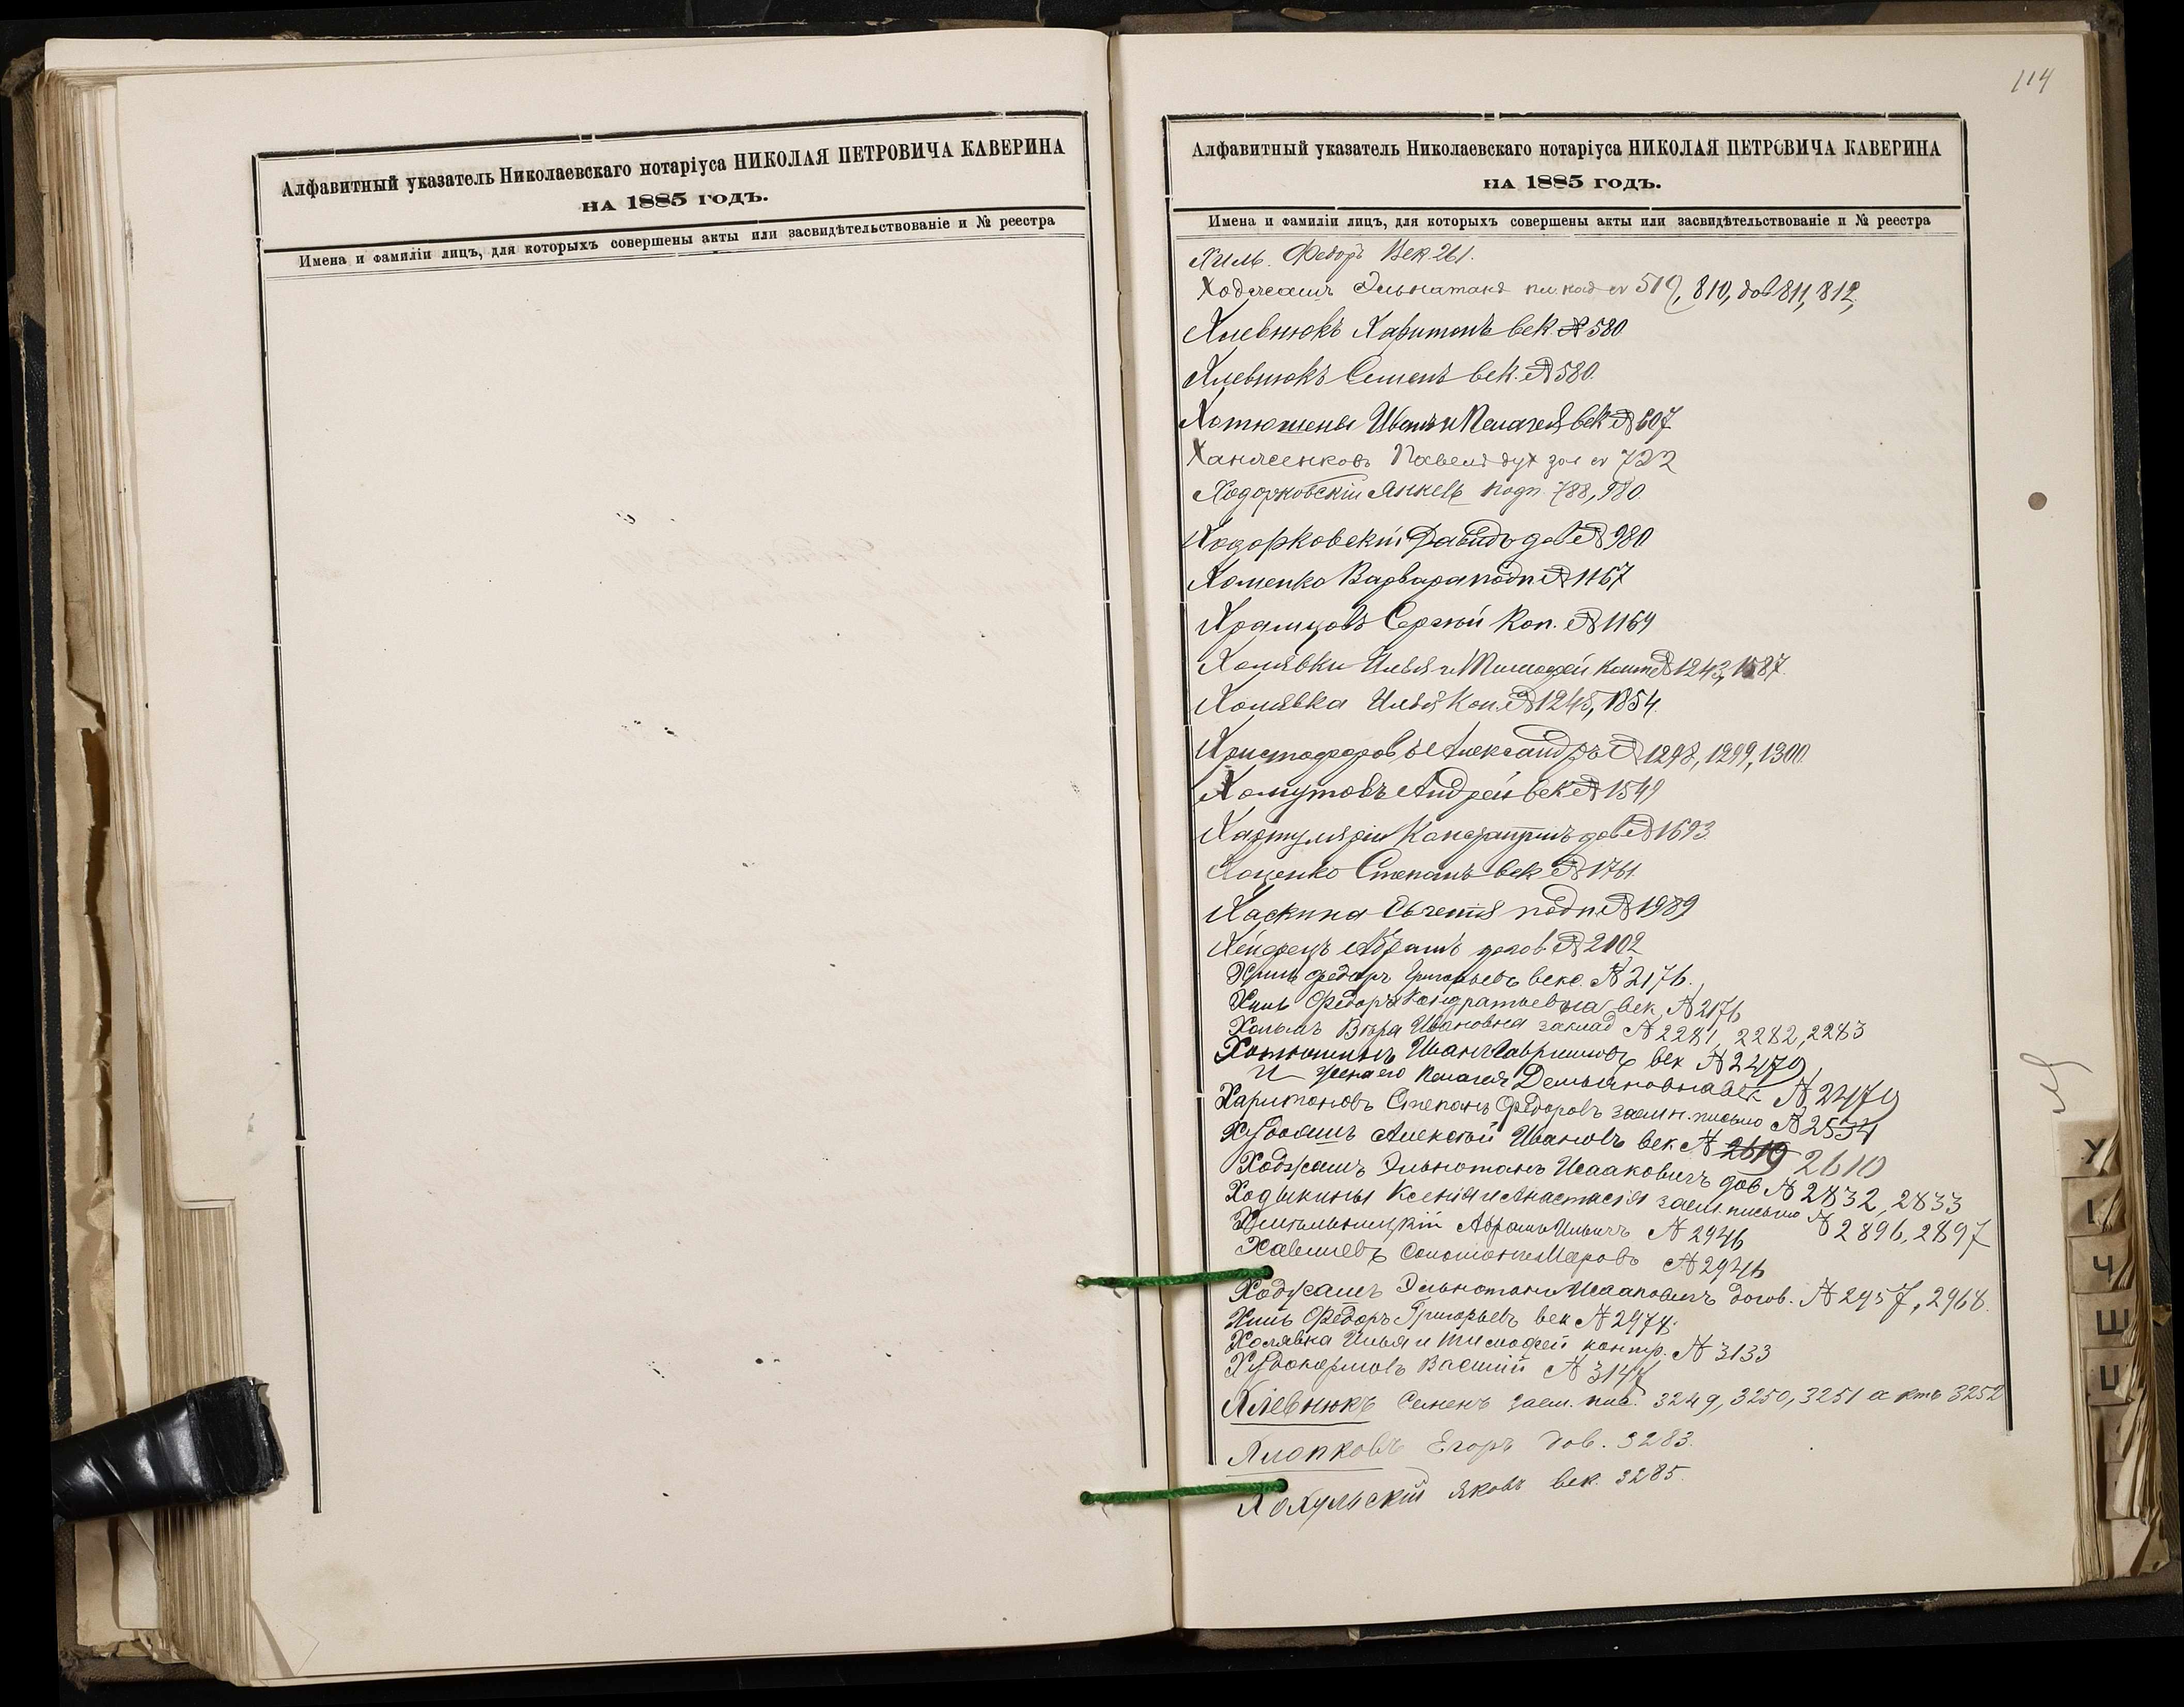 Алфавитный указатель Николаевскаго нотаріуса НИКОЛАЯ ПЕТРОВИЧА КАВЕРИНА
НА 1885 ГОДЪ.
Имена и фамиліи лицъ, для которыхъ совершены акты или засвидѣтельствованіе и № реестра
114
Алфавитный указатель Николаевскаго нотаріуса НИКОЛАЯ ПЕТРОВИЧА КАВЕРИНА
НА 1885 ГОДЪ.
Имена и фамиліи лицъ, для которыхъ совершены акты или засвидѣтельствованіе и № реестра
Хиль Федоръ Век 261.
Ходжашъ 519, 810, дов 811, 812,
Хлевнюкъ Харитонъ век. № 580
Хлевнюкъ Семенъ век. № 580.
Хотюшены Иванъ и Пелагея век № 607
Павелъ дух 722
Ходорковскій Янкель подп. 788, 980.
Ходорковскій Давидъ дов № 980
Хоменко Варвара подп № 1167
Храмцовъ Сергѣй Коп. № 1169
Холявки Илья и Тимофей конт № 1243, 1587.
Холявка Илья Коп. № 1245, 1854.
Христофоровъ Александръ № 1298, 1299, 1300.
Хомутовъ Андрей век № 1549
Константинъ дов № 1693.
Хоценко Степанъ век № 1761
Хаскина подп. № 1989
Абрамъ догов № 2102
Хиль Федоръ Григорьевъ векс. № 2176.
Хиль Федора Кондратьевна век № 2176
Хольмъ Вѣра Ивановна заклад № 2281, 2282, 2283
Хотюшинъ Иванъ Гавриловъ век № 2479
и жена его Пелагея Демьяновна век № 2479
Харитоновъ Степанъ Федоровъ заемн. письмо № 2534
Алексѣй Ивановъ век № 2619 2610
Ходжашъ Эльнотанъ Исааковичъ дов № 2832, 2833
Ходыкины Ксенія и Анастасія заем письмо № 2896, 2897
Хмѣльницкій Абрамъ Ильичъ № 2946
Соломонъ Меровъ № 2946
Ходжашъ Эльнотанъ Исааковичъ догов. № 2957, 2968.
Хиль Федоръ Григорьевъ век № 2974.
Холявка Илья и Тимофей контр. № 3133
Худокормовъ Василій № 3144
Хлевнюкъ Семенъ заем. пис. 3249, 3250, 3251 актъ 3252
Хлопковъ Егоръ дов. 3283.
Яковъ век. 3285.
У
І
Ч
Ш
Щ